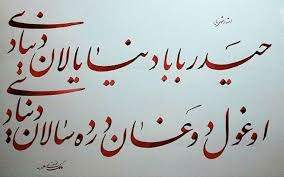 استاد شهریار
حیدر بابا دنیا یالان دنیادی
اوغول دوغان درده سالان دنیادی